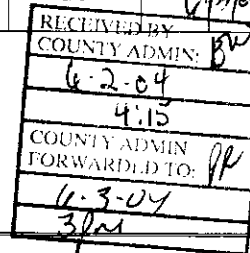 RECEIVED BY
COUNTY ADMIN: BW
6-2-04
4:15
COUNTY ADMIN
FORWARDED TO: PR
6-3-04
3PM